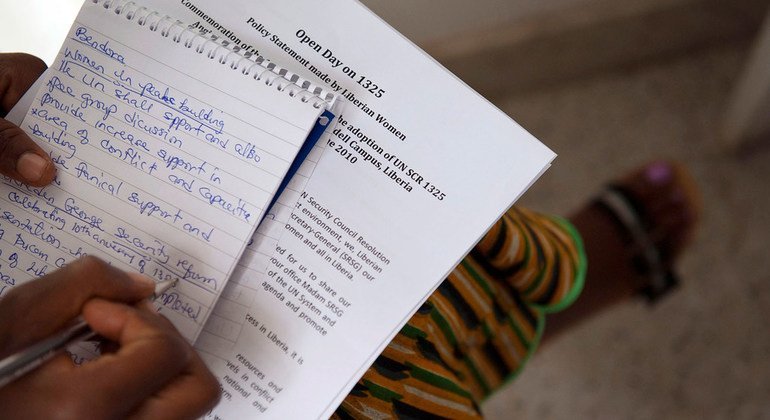 Bendora
Women in peace building
The UN shall spport and also
give group dicussion
provide increase support in
area of conflict and capacite
building of
fanical support and
George security reform
celebrating 10th anniversary of 1325
Open Day on 1325
Policy Statement made by Liberian Women
Commemoration of the
he adoption of UN SCR 1325
dell Campus, Liberia
e 2010
N Security Council Resolution
t environment, we, Liberian
ecretary-General (SRSG) our
omen and all in Liberia.
ed for us to share our
our office Madam SRSG
of the UN System and
agenda and promote
cess in Liberia, it is
resources and
vels in conflict
national and
rm.